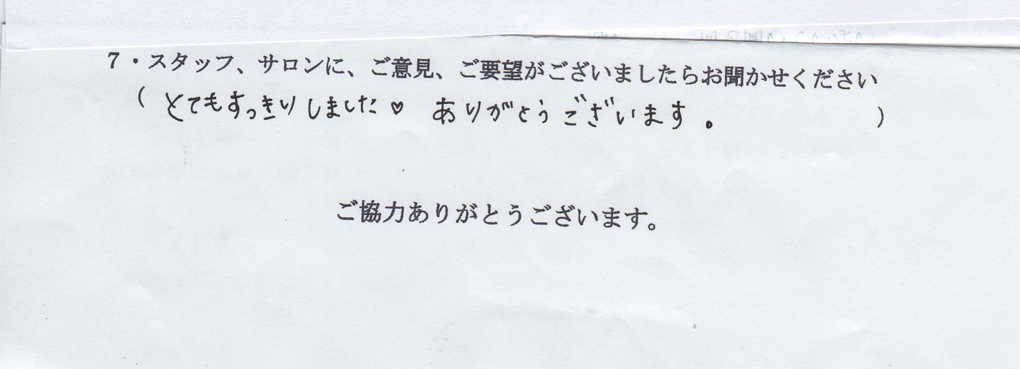 7・スタッフ、サロンに、ご意見、ご要望がございましたらお聞かせください
(とてもすっきりしました♡ ありがとうございます。)
ご協力ありがとうございます。